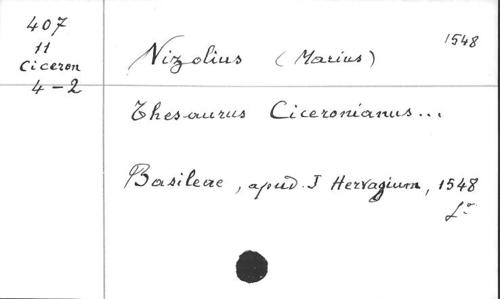 407
11
Ciceron
4-2
Nizolius (Marius) 1548
Thesaurus Ciceronianus...
Basileae, apud. J Hervagium, 1548
f°